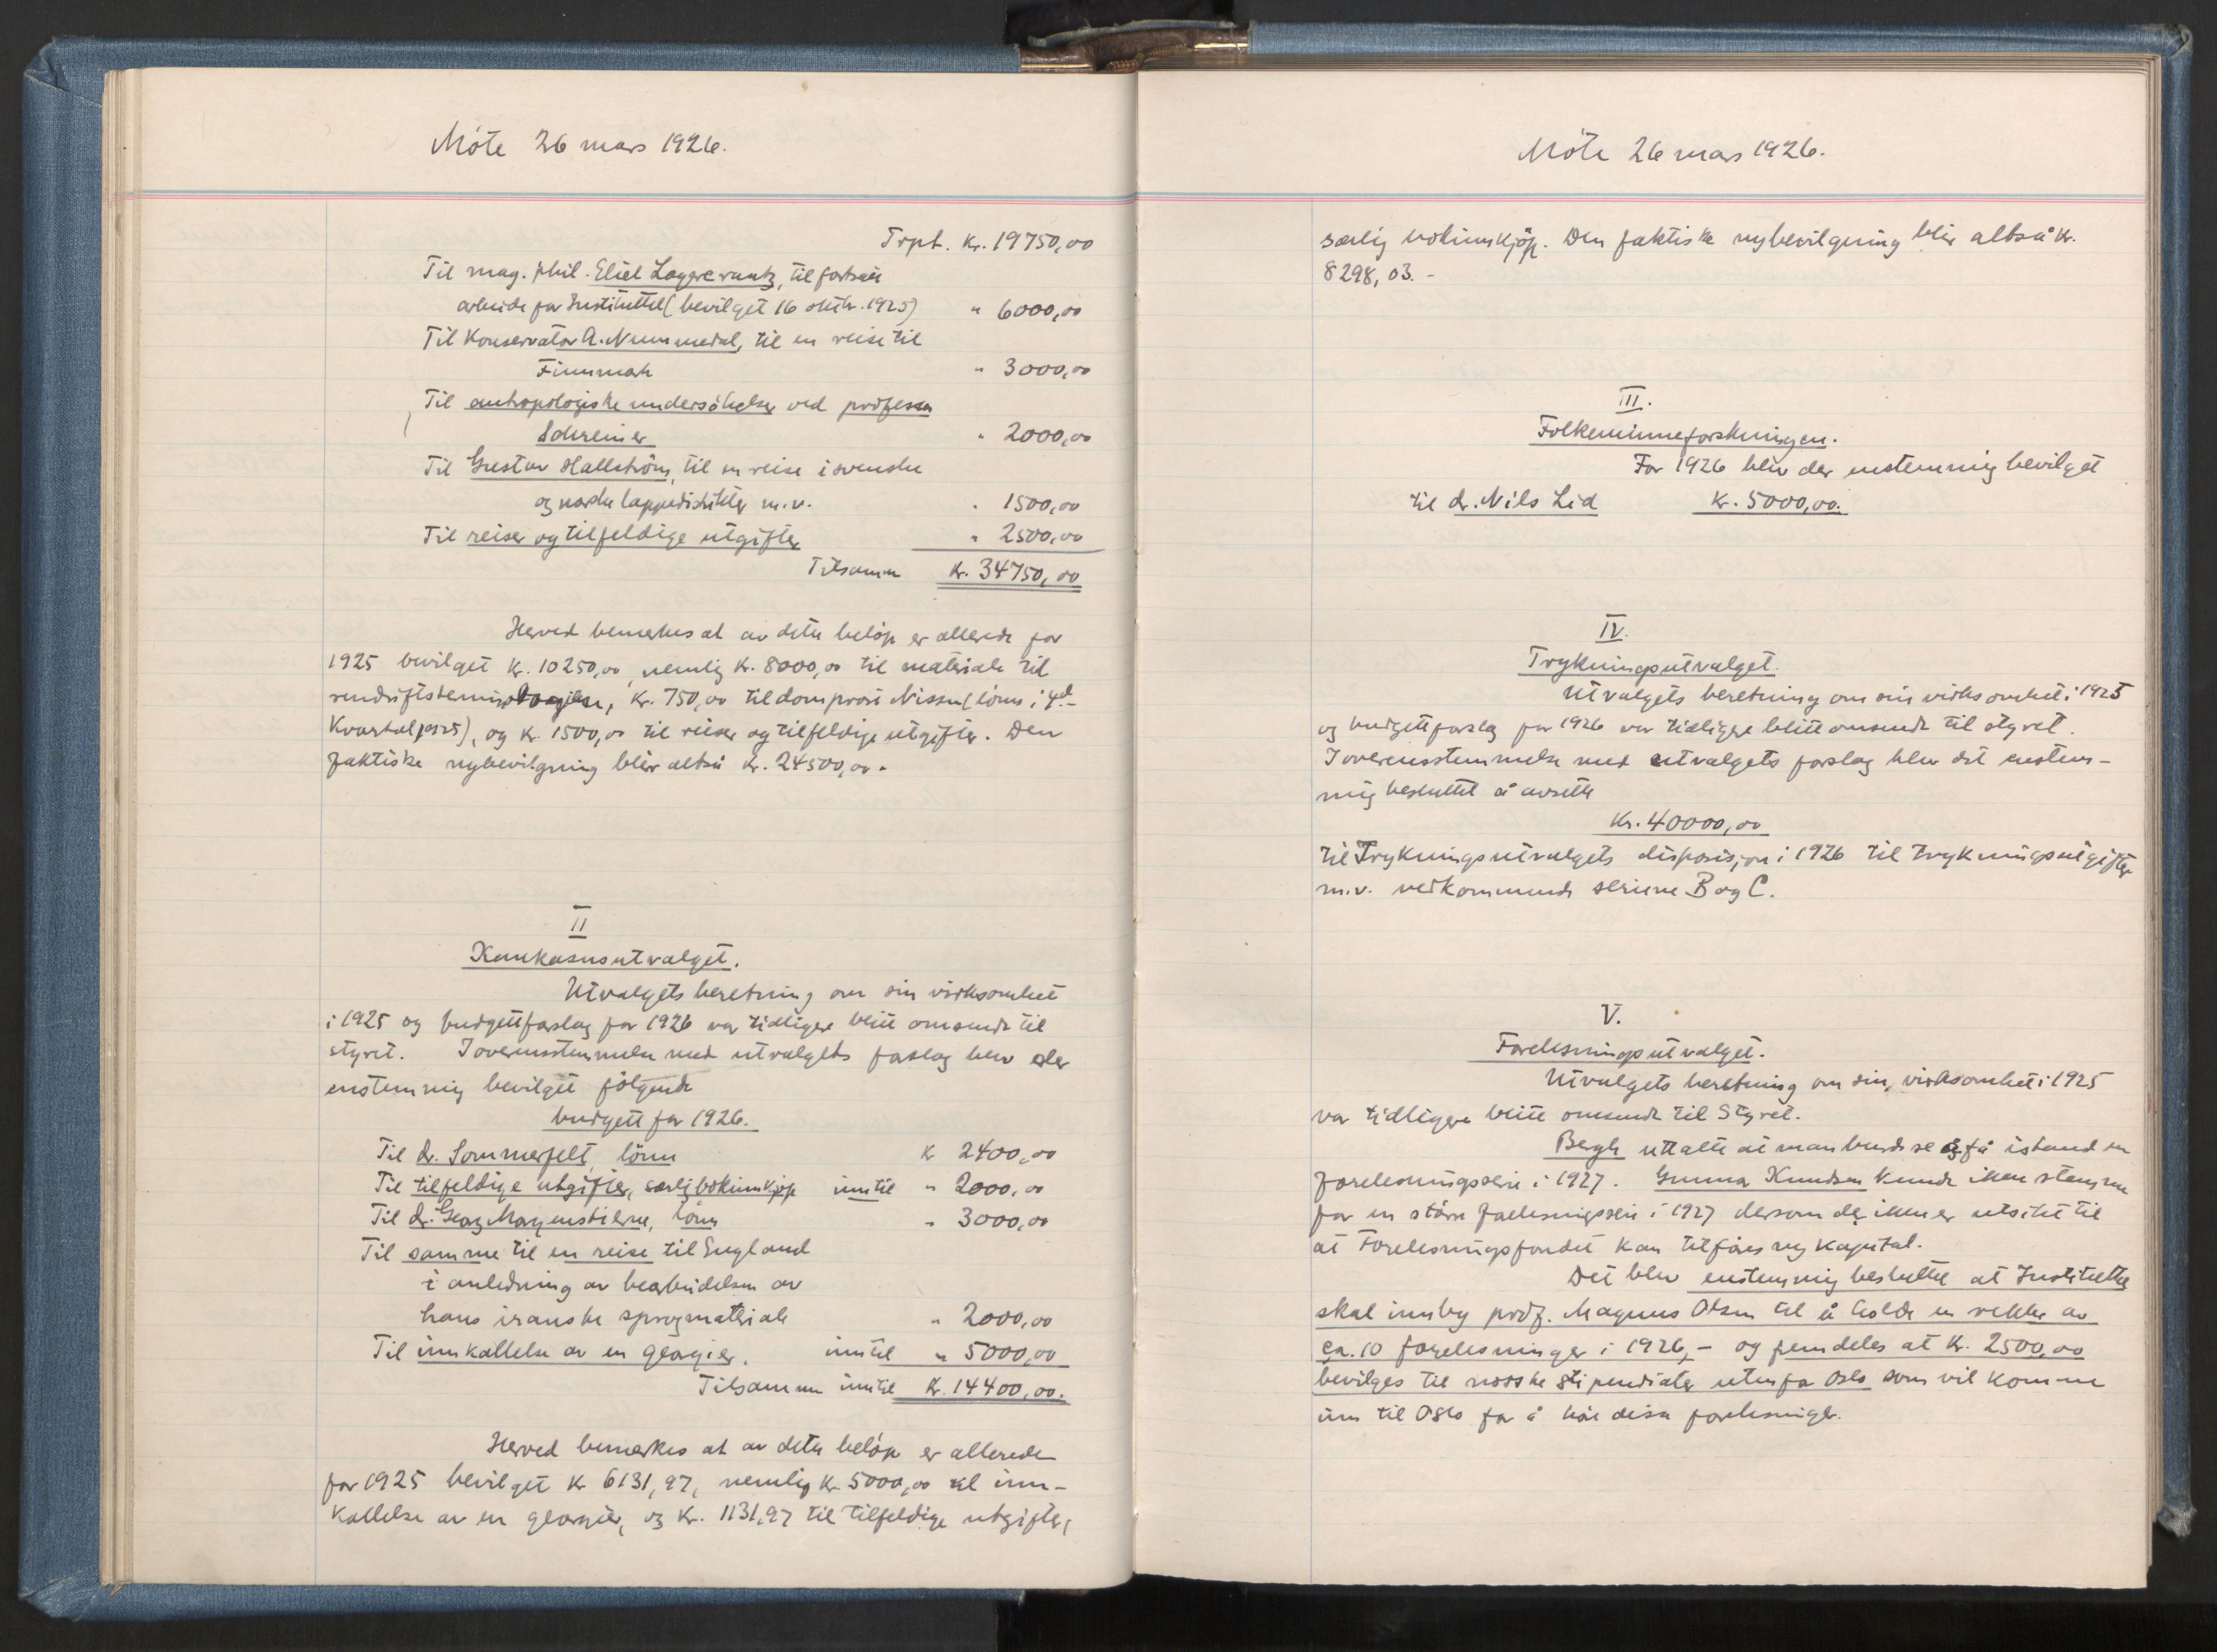 Möte 26 mars 1926.
Trpt. Kr. 19750,00
Til mag. phil. Eliel Lagercrantz, til fortsatt
arbeide for Instituttet (bevilget 16 oktbr. 1925) " 6000,00
Til Konservator A. Nummedal, til en reise til
Finnmark " 3000,00
Til antropologiske undersökelser ved professor
Schreiner " 2000,00
Til Gustav Hallström, til en reise i svenske
og norske lappedistrikter m.v. " 1500,00
Til reiser og tilfeldige utgifter " 2500,00
Tilsamm Kr. 34750,00
Herved bemerkes at av dette belöp er allerede for
1925 bevilget Kr. 10250,00, nemlig Kr. 8000,00 til materiale til
rendriftsterminologien, Kr. 750,00 til domprost Nissen (lönn i 4de
Kvartal 1925), og Kr. 1500,00 til reiser og tilfeldige utgifter. Den
faktiske nybevilgning blir altså Kr. 24500,00.
II
Kaukasusutvalget.
Utvalgets beretning om sin virksomhet
i 1925 og budgettforslag for 1926 var tidligere blitt omsendt til
styret. I overensstemmelse med utvalgets forslag blev der
enstemmig bevilget fölgende
budgett for 1926.
Til dr. Sommerfelt, lönn Kr 2400,00
Til tilfeldige utgifter, særlig bokinnkjöp inntil " 2000,00
Til dr. Georg Morgenstierne, lönn " 3000,00
Til samme til en reise til England
i anledning av bearbeidelsen av
hans iranske sprogmateriale " 2000,00
Til innkallelse av en georgier. inntil " 5000,00
Tilsammen inntil Kr. 14400,00.
Herved bemerkes at av dette belöp er allerede
for 1925 bevilget Kr 6131,97, nemlig Kr. 5000,00 til inn-
kallelse av en georgier, og Kr. 1131,97 til tilfeldige utgifter,
Möte 26 mars 1926.
særlig bokinnkjöp. Den faktiske nybevilgning blir altså Kr.
8298,03.-
III.
Folkeminneforskningen.
For 1926 blev der enstemmig bevilget
til dr. Nils Lid Kr. 5000,00.
IV.
Trykningsutvalget.
Utvalgets beretning om sin virksomhet i 1925
og budgettforslag for 1926 var tidligere blitt omsendt til styret.
I overensstemmelse med utvalgets forslag blev det enstem-
mig besluttet å avsette
Kr. 40000,00
til Trykningsutvalgets disposisjon i 1926 til trykningsutgifter
m.v. vedkommende seriene B og C.
V.
Forelesningsutvalget.
Utvalgets beretning om sin virksomhet i 1925
var tidligere blitt omsendt til Styret.
Bergh uttalte at man burde se å få istand en
forelesningsserie i 1927. Gunnar Knudsen kunde ikke stemme
for en större forelesningsserie i 1927 dersom der ikke er utsikt til
at Forelesningsfondet kan tilföres ny kapital.
Det blev enstemmig besluttet at Instituttet
skal innby prof. Magnus Olsen til å holde en rekke av
ca. 10 forelesninger i 1926,- og fremdeles at Kr. 2500,00
bevilges til norske stipendiater utenfor Oslo som vil komme
inn til Oslo for å höre disse forelesninger.